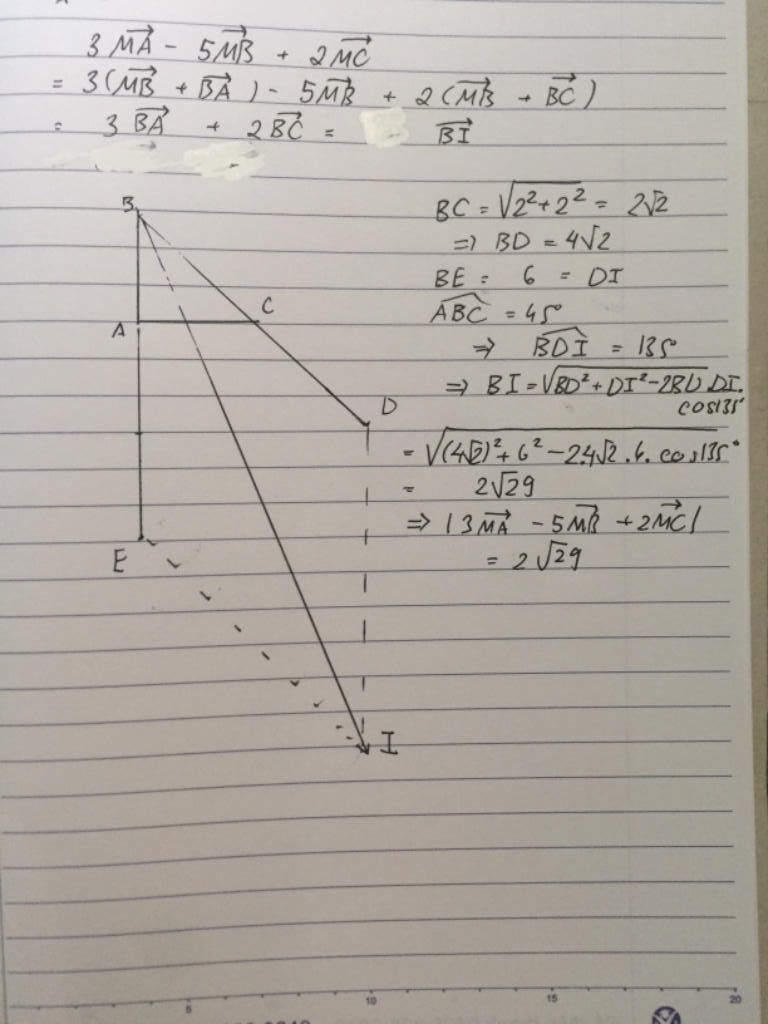 3MA⃗ - 5MB⃗ + 2MC⃗
= 3(MB⃗ + BA⃗) - 5MB⃗ + 2(MB⃗ + BC⃗)
= 3BA⃗ + 2BC⃗ = BI⃗
B
A
C
D
E
I
BC = √(2²+2²) = 2√2
⇒ BD = 4√2
BE = 6 = DI
ABC = 45°
⇒ BDI = 135°
⇒ BI = √(BD² + DI² - 2BD.DI.
cos135°
= √((4√2)² + 6² - 2.4√2.6.cos135°
= 2√29
⇒ |3MA⃗ - 5MB⃗ + 2MC⃗|
= 2√29
5 10 15 20